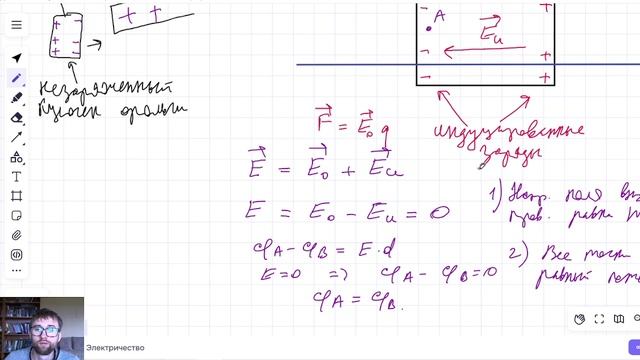 + +
A
E⃗и
незаряженный
кусочек фольги
F⃗ = E⃗₀ q
индуцированные
заряды
E⃗ = E⃗₀ + E⃗и
E = E₀ − Eи = 0
φA − φB = E·d
E=0 ⇒ φA − φB = 0
φA = φB.
1) Напр. поля
равна
2) Все
равный
Электричество